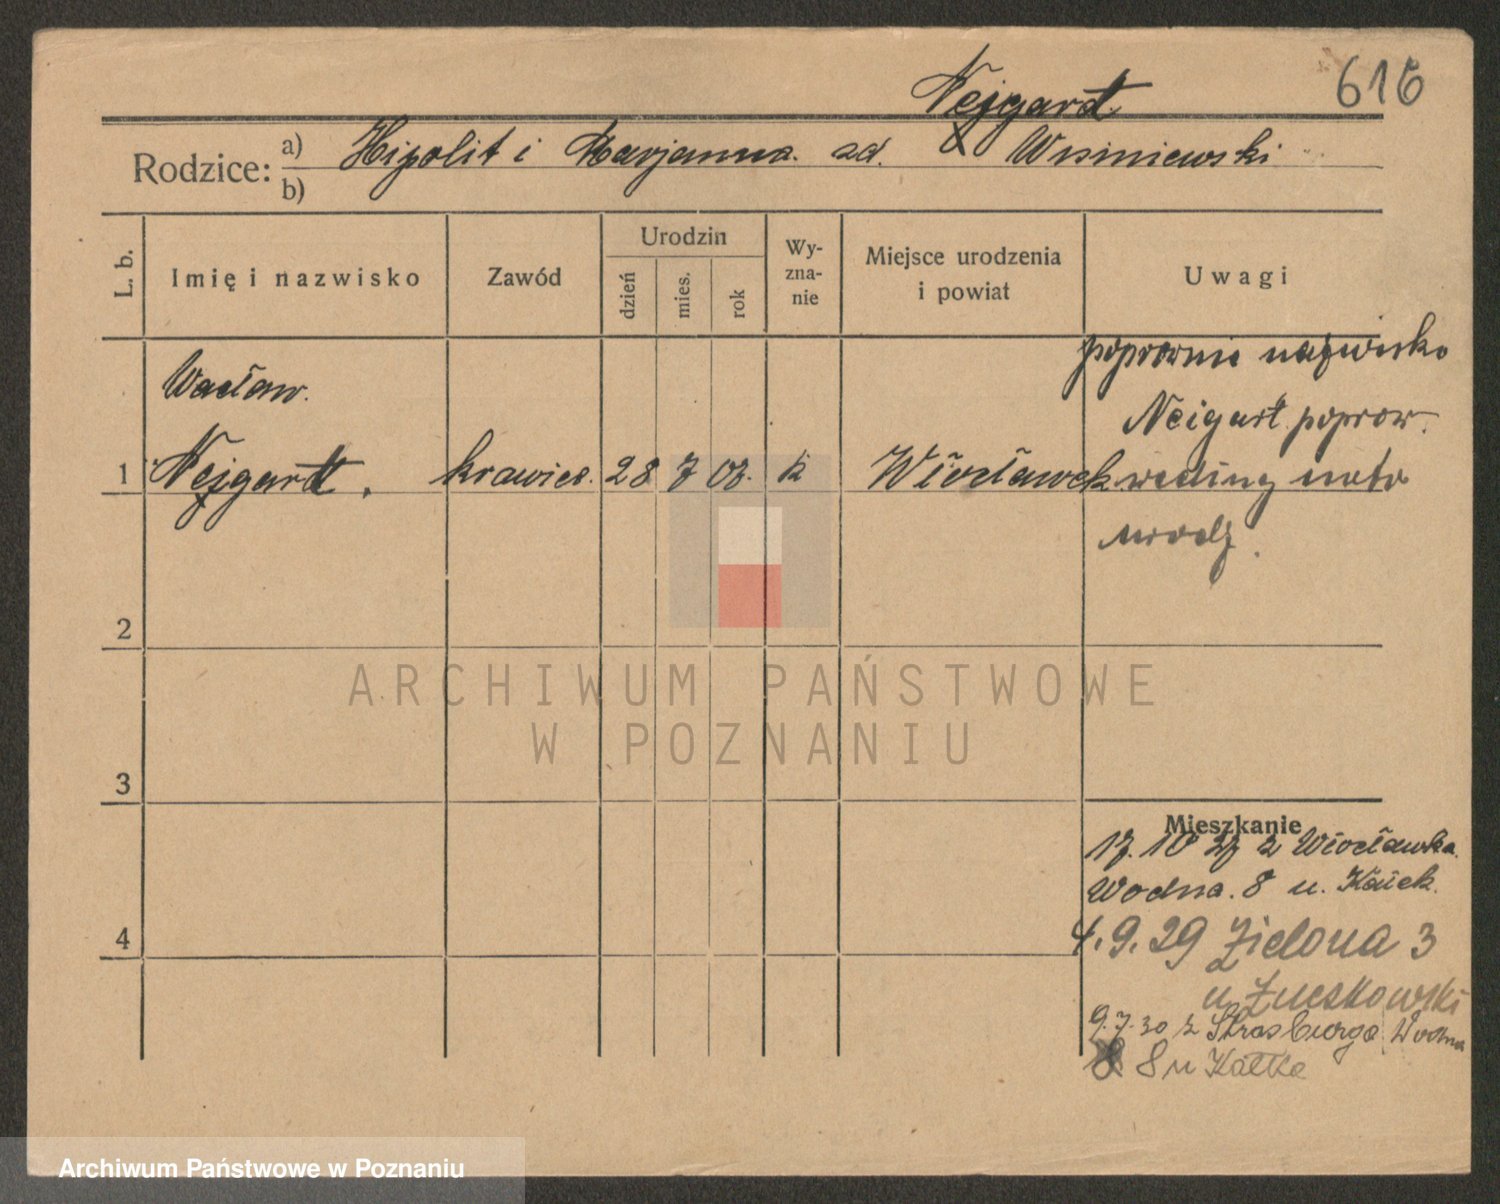 Nejgardt
616
Rodzice: a) Hipolit i Marjanna. zd. Wisniewski
b)
L. b.
Imię i nazwisko
Zawód
Urodzin
dzień
mies.
rok
Wy-
zna-
nie
Miejsce urodzenia
i powiat
Uwagi
poprawnie nazwisko
Wacław.
Neigart popraw.
1 Nejgardt. krawiec. 28 7 07. k Włocławek według meto
urodz.
2
ARCHIWUM PAŃSTWOWE
W POZNANIU
3
Mieszkanie
17. 10 27 z Włocławka.
Wodna. 8 u.
4
4. 9. 29 Zielona 3
u
9.7.30 z Strasburga Wodna
8 u Kałka
Archiwum Państwowe w Poznaniu